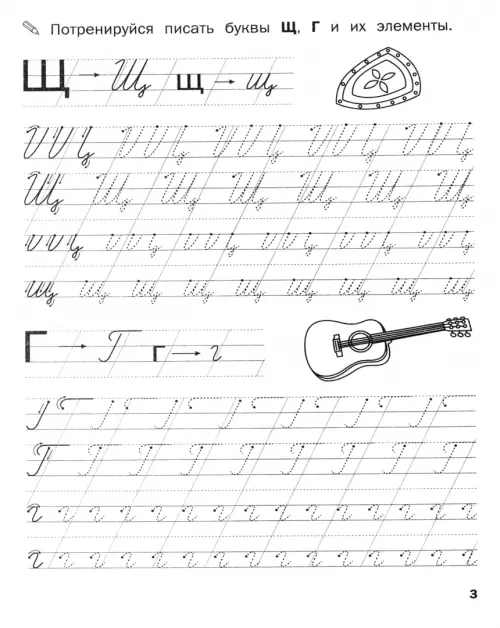 Потренируйся писать буквы Щ, Г и их элементы.
Щ → Щ щ → щ
Щ Щ Щ Щ Щ Щ Щ Щ
щ щ щ щ щ щ щ щ щ
Г → Г г → г
Г Г Г Г Г Г Г Г Г
г г г г г г г г г г г г г г г г
г г г г г г г г г г г г г г г г
3